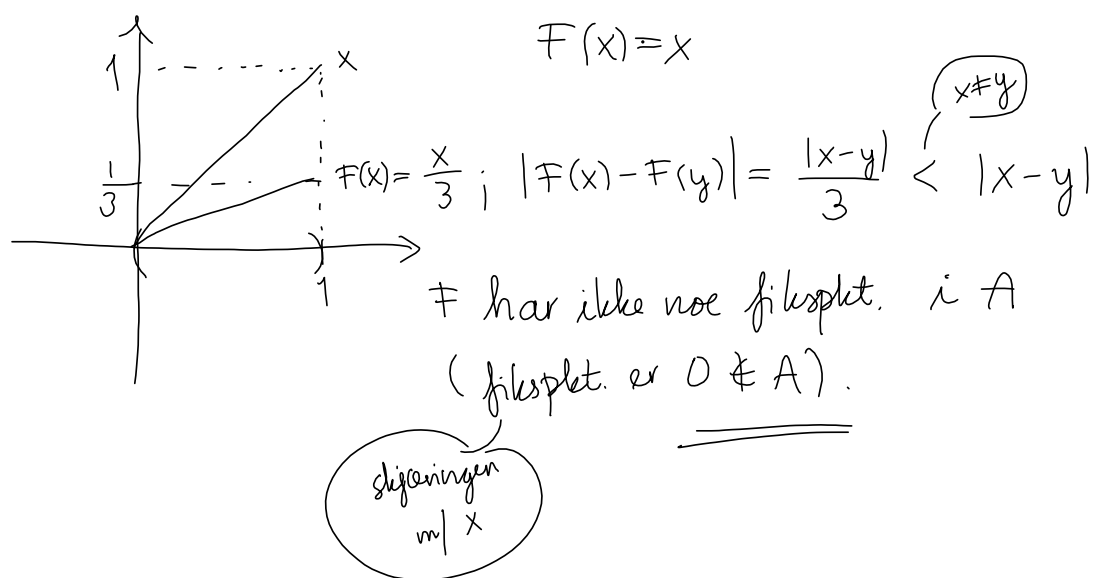 F(x) = x
1
x
x≠y
1/3
F(x) = x/3 ; |F(x) - F(y)| = |x-y|/3 < |x-y|
1
F har ikke noe fikspkt. i A
(fikspkt. er 0 ∉ A).
skjæringen
m/ x